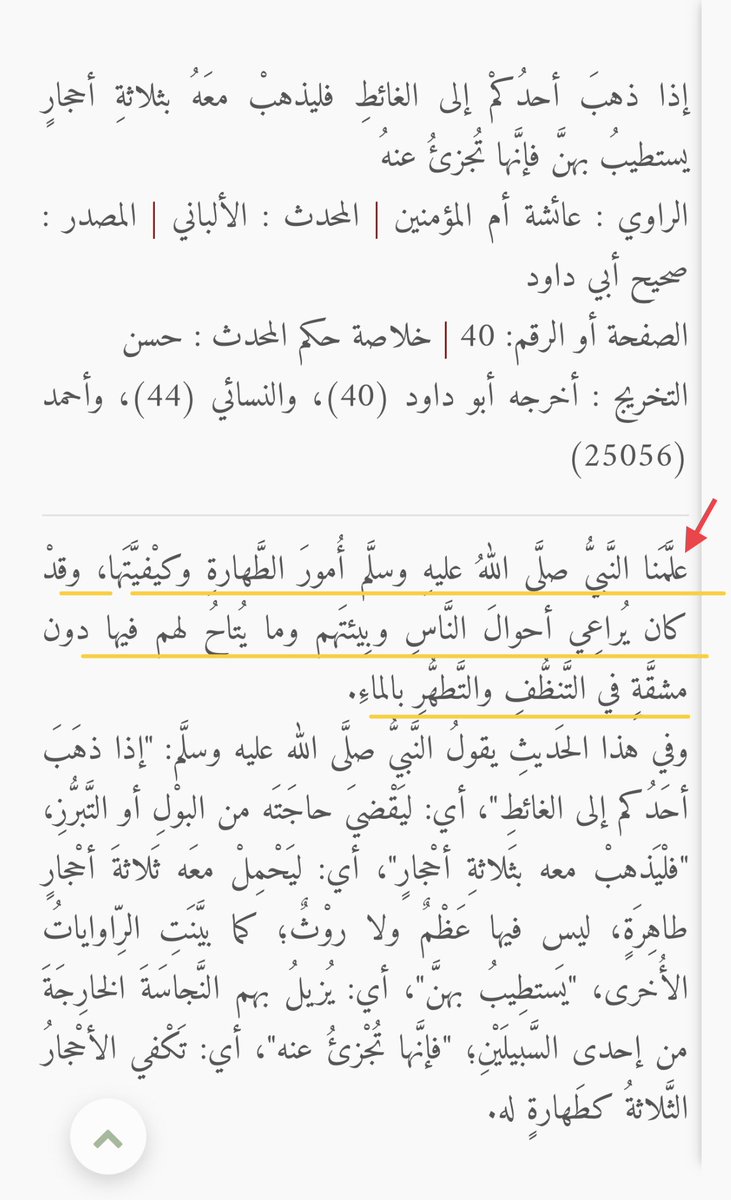 إذا ذهبَ أحدُكمْ إلى الغائطِ فليذهبْ معَهُ بثلاثةِ أحجارٍ
يستطيبُ بهنَّ فإنَّها تُجزئُ عنهُ
الراوي : عائشة أم المؤمنين | المحدث : الألباني | المصدر :
صحيح أبي داود
الصفحة أو الرقم: 40 | خلاصة حكم المحدث : حسن
التخريج : أخرجه أبو داود (40)، والنسائي (44)، وأحمد
(25056)
علَّمَنا النَّبيُّ صلَّى اللهُ عليهِ وسلَّم أُمورَ الطَّهارةِ وكيْفيَّتَها، وقدْ
كان يُراعِي أحوالَ النَّاسِ وبِيئتَهم وما يُتاحُ لهم فيها دون
مشقَّةٍ في التَّنظُّفِ والتَّطهُّرِ بالماءِ.
وفي هذا الحَديثِ يقولُ النَّبيُّ صلَّى الله عليه وسلَّم: "إذا ذهَبَ
أحَدُكم إلى الغائطِ"، أي: ليَقْضيَ حاجَتَه من البوْلِ أو التَّبرُّزِ،
"فلْيَذهبْ معه بثَلاثةِ أحْجارٍ"، أي: ليَحْمِلْ معَه ثَلاثةَ أحْجارٍ
طاهِرَةٍ، ليس فيها عَظْمٌ ولا روْثٌ؛ كما بيَّنَتِ الرِّاواياتُ
الأُخرى، "يَستطِيبُ بهنَّ"، أي: يُزيلُ بهم النَّجاسَةَ الخارِجَةَ
من إحدى السَّبيلَيْنِ؛ "فإنَّها تُجْزئُ عنه"، أي: تَكْفي الأحْجارُ
الثَّلاثةُ كطَهارةٍ له.